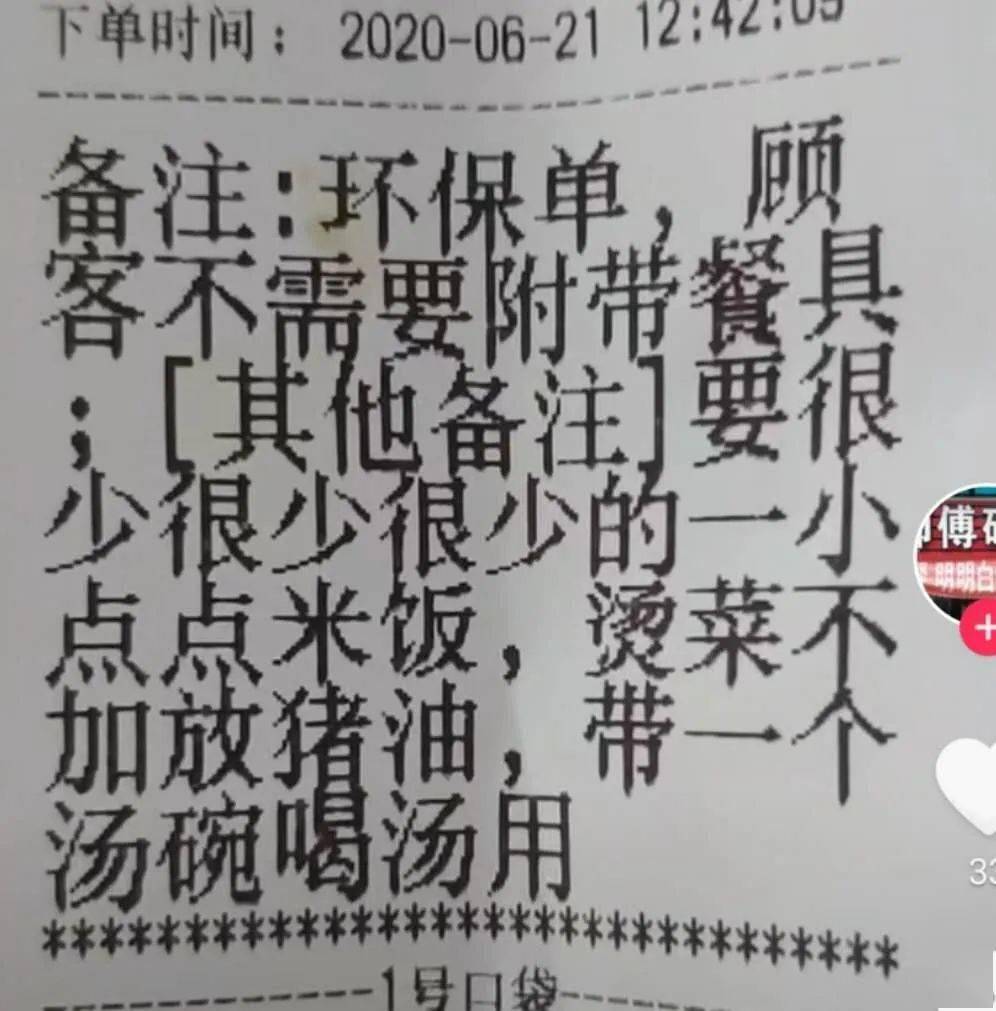 下单时间： 2020-06-21 12:42:09
备注:环保单, 顾
客不需要附带餐具
;[其他备注]要很
少很少很少的一小
点点米饭,烫菜不
加放猪油,带一个
汤碗喝汤用
******************************
1号口袋
傅
明明白
33